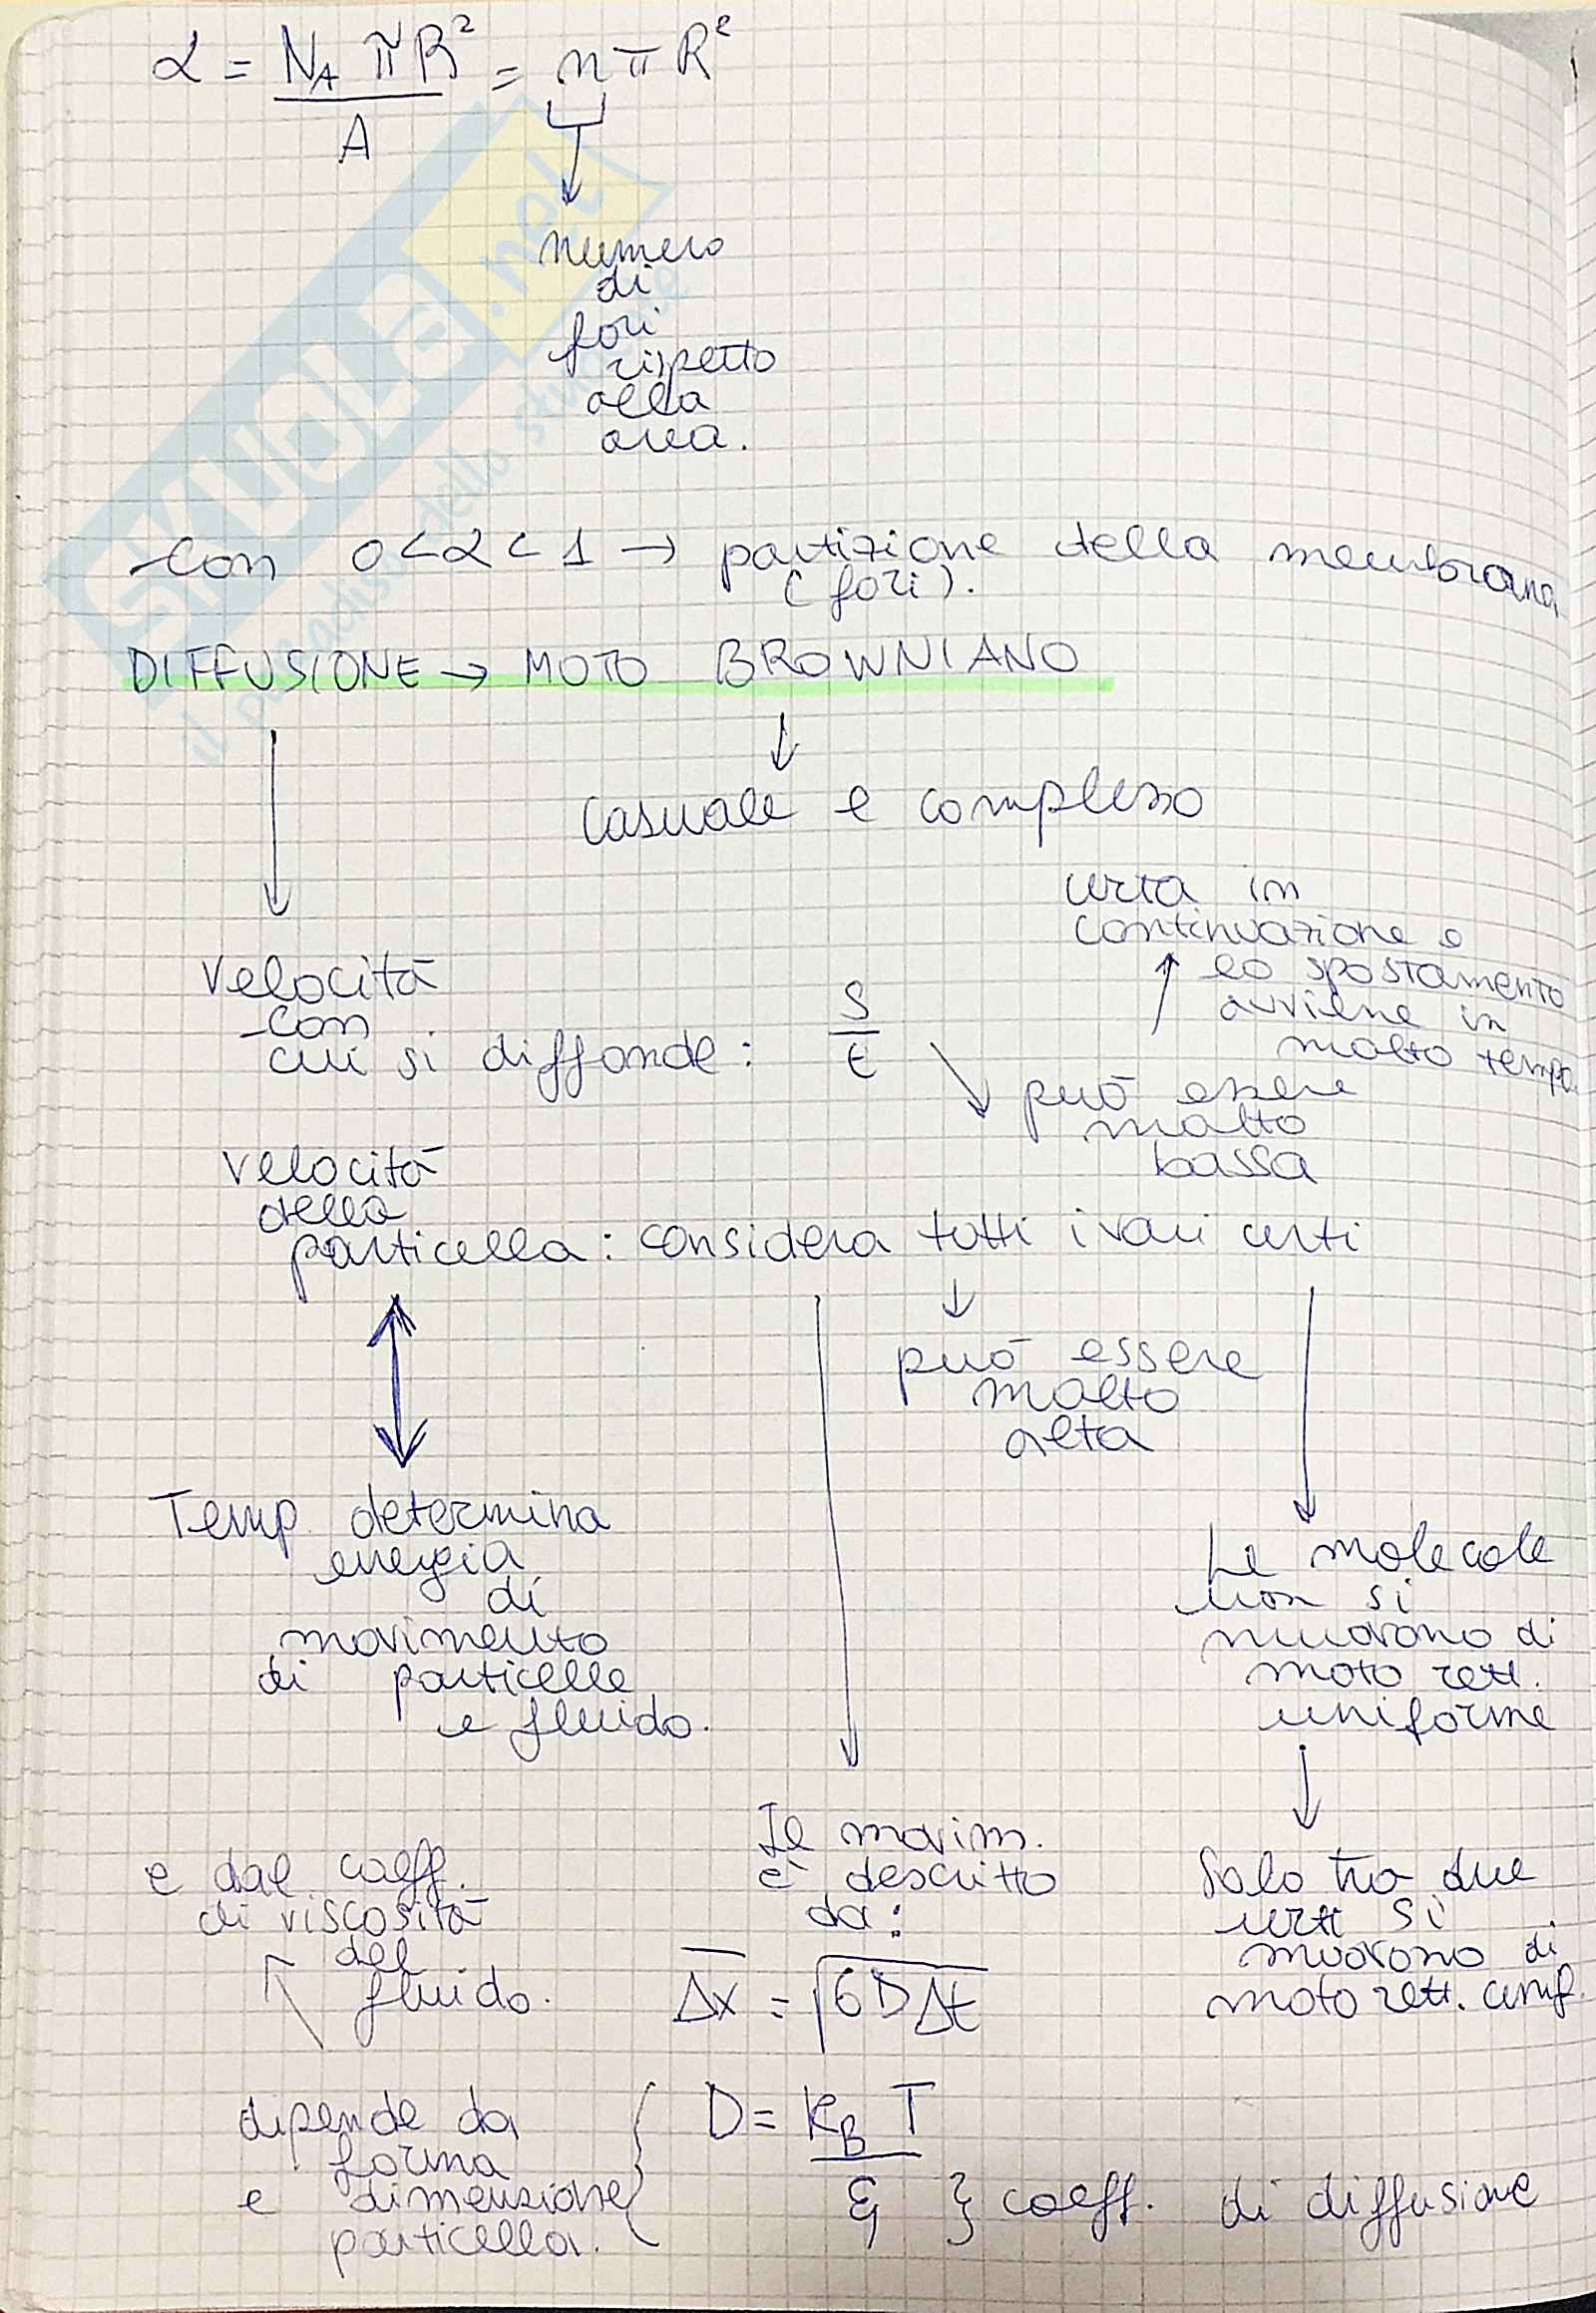 α = N_A π R² / A = n π R²
numero
di
fori
rispetto
alla
area.
Con 0<α<1 → partizione della membrana
(fori).
DIFFUSIONE → MOTO BROWNIANO
casuale e complesso
urta in
continuazione e
lo spostamento
avviene in
molto tempo.
velocità
con
cui si diffonde: S/t
può essere
molto
bassa
velocità
della
particella: considera tutti i vari urti
può essere
molto
alta
Temp. determina
energia
di
movimento
di particelle
e fluido.
Le molecole
non si
muovono di
moto rett.
uniforme
Il movim.
è descritto
da:
e dal coeff.
di viscosità
del
fluido.
Solo tra due
urti si
muovono di
moto rett. unif.
Δx = √6DΔt
dipende da
forma
e dimensione
particella.
D = k_B T / ξ } coeff. di diffusione
SKUOLA.net
il paradiso dello studente